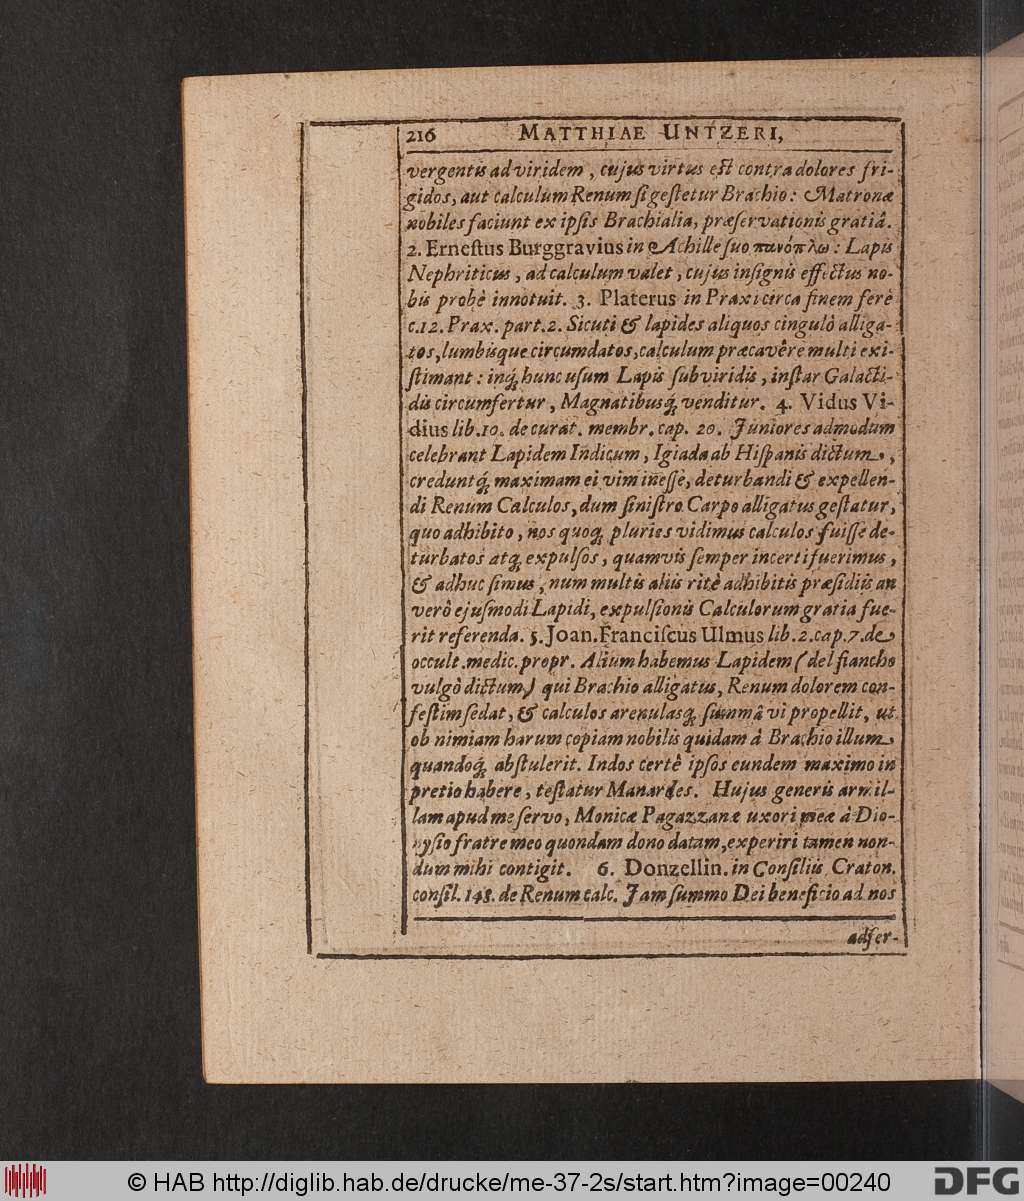 216 MATTHIAE UNTZERI,
vergentis ad viridem, cujus virtus est contra dolores fri-
gidos, aut calculum Renum si gestetur Brachio: Matronæ
nobiles faciunt ex ipsis Brachialia, præservationis gratiâ.
2. Ernestus Burggravius in Achille suo πανόπλω: Lapis
Nephriticus, ad calculum valet, cujus insignis effectus no-
bis probè innotuit. 3. Platerus in Praxi circa finem ferè
c.12. Prax. part.2. Sicuti & lapides aliquos cingulô alliga-
tos, lumbisque circumdatos, calculum præcavêre multi exi-
stimant: inq́; hunc usum Lapis subviridis, instar Galacti-
dis circumfertur, Magnatibusq́; venditur. 4. Vidus Vi-
dius lib.10. de curat. membr. cap. 20. Juniores admodum
celebrant Lapidem Indicum, Igiada ab Hispanis dictum,
creduntq́; maximam ei vim inesse, deturbandi & expellen-
di Renum Calculos, dum sinistro Carpo alligatus gestatur,
quo adhibito, nos quoq; pluries vidimus calculos fuisse de-
turbatos atq; expulsos, quamvis semper incerti fuerimus,
& adhuc simus, num multis aliis ritè adhibitis præsidiis an
verò ejusmodi Lapidi, expulsionis Calculorum gratia fue-
rit referenda. 5. Joan. Franciscus Ulmus lib.2. cap.7. de
occult. medic. propr. Alium habemus Lapidem (del fiancho
vulgò dictum) qui Brachio alligatus, Renum dolorem con-
festim sedat, & calculos arenulasq; summâ vi propellit, ut
ob nimiam harum copiam nobilis quidam à Brachio illum
quandoq́; abstulerit. Indos certè ipsos eundem maximo in
pretio habere, testatur Manardes. Hujus generis armil-
lam apud me servo, Monicæ Pagazzanæ uxori meæ à Dio-
nysio fratre meo quondam dono datam, experiri tamen non-
dum mihi contigit. 6. Donzellin. in Consiliis Craton.
consil. 148. de Renum calc. Jam summo Dei beneficio ad nos
adser-
© HAB http://diglib.hab.de/drucke/me-37-2s/start.htm?image=00240
DFG